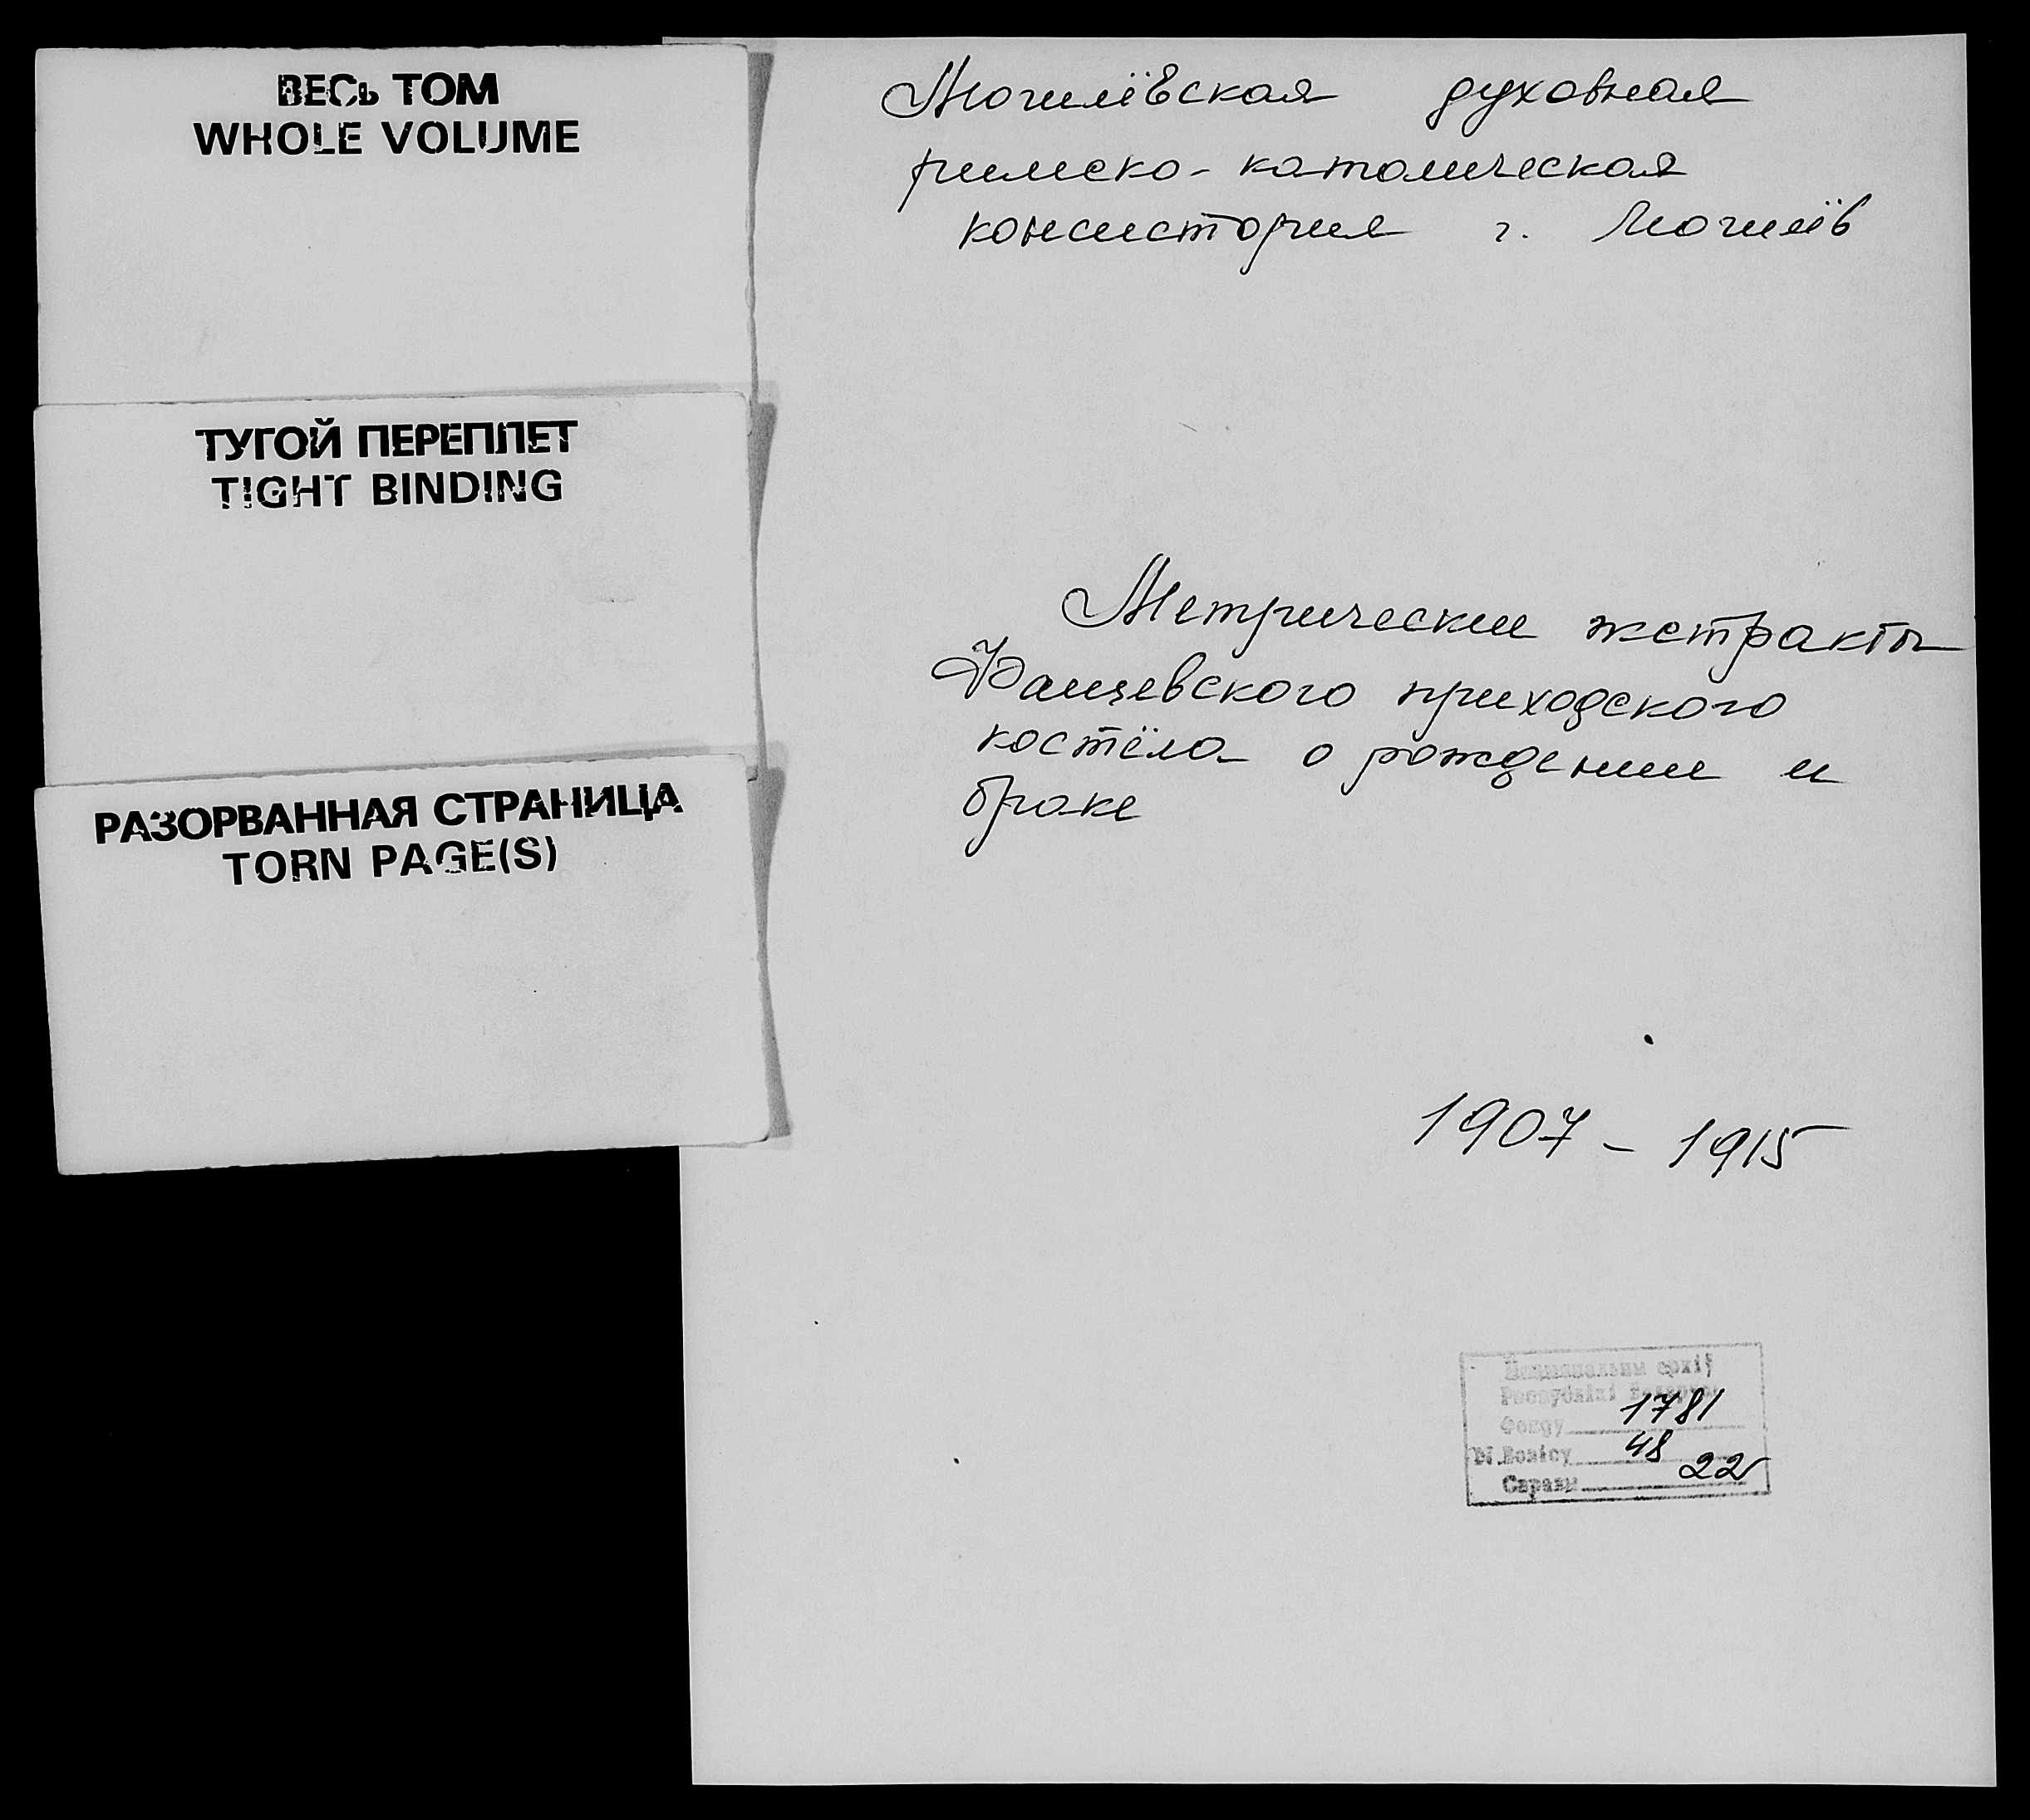 ВЕСЬ ТОМ
WHOLE VOLUME
ТУГОЙ ПЕРЕПЛЕТ
TIGHT BINDING
РАЗОРВАННАЯ СТРАНИЦА
TORN PAGE(S)
Могилёвская духовная
римско-католическая
консистория г. Могилёв
Метрические экстракты
Фащевского приходского
костёла о рождении и
браке
1907 - 1915
Нацыянальны архіў
Рэспублікі Беларусь
Фонду 1781
Вопісу 48
Справы 22